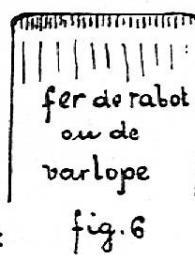 fer de rabot
ou de
varlope
fig. 6